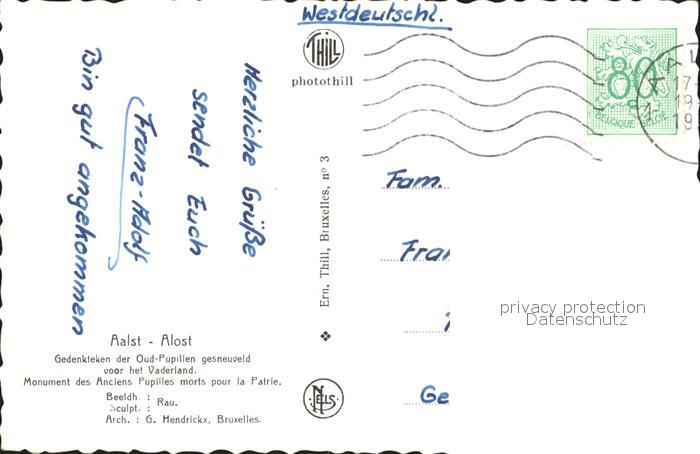 Westdeutschl.
THILL
photothill
80
BELGIQUE BELGIË
Herzliche Grüße
sendet Euch
Franz-Adolf
Bin gut angekommen
Ern. Thill, Bruxelles, n° 3
Fam.
privacy protection
Datenschutz
Aalst - Alost
Gedenkteken der Oud-Pupillen gesneuveld
voor het Vaderland.
Monument des Anciens Pupilles morts pour la Patrie.
Beeldh. : Rau.
Sculpt. :
Arch. : G. Hendrickx, Bruxelles.
NELS